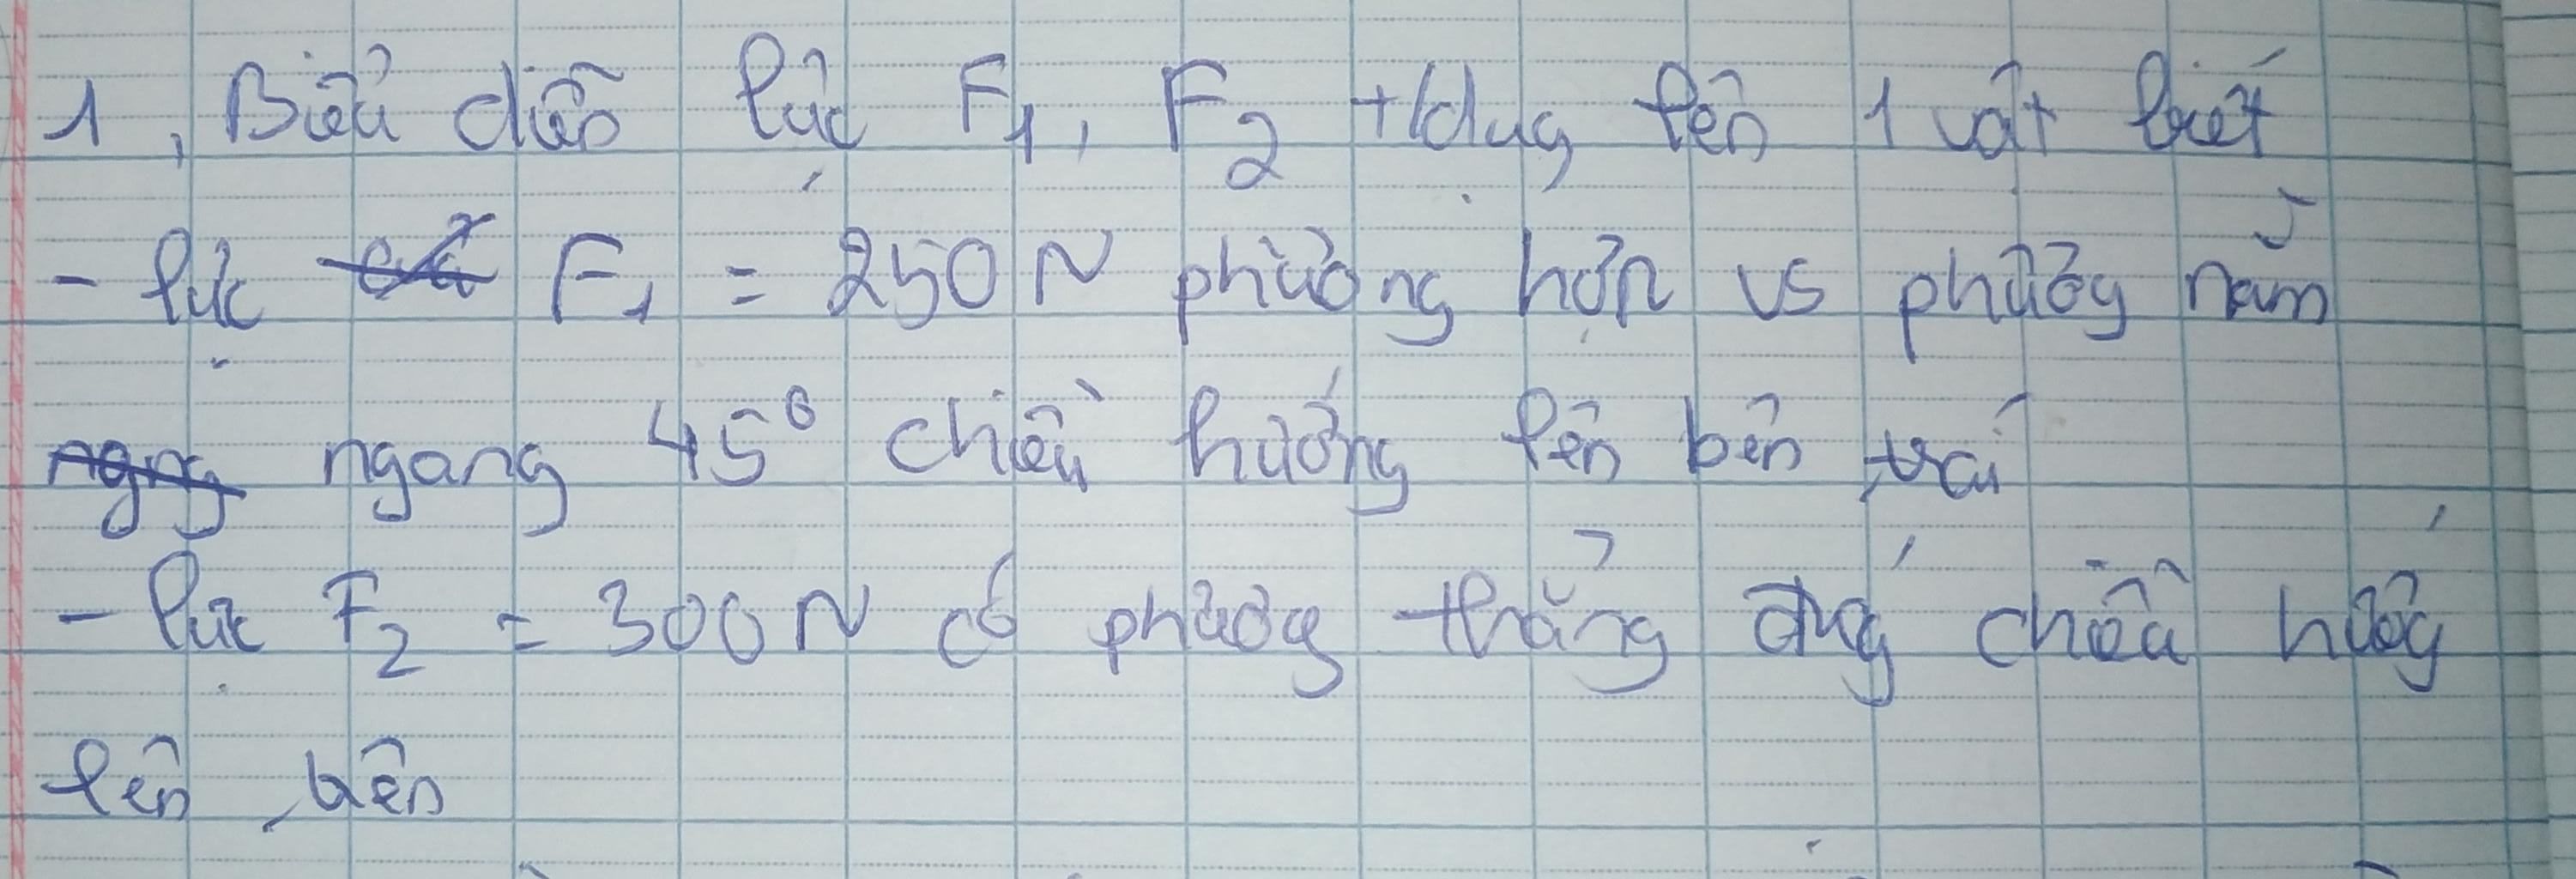 1, Biểu diễn lực F1, F2 t/dụg lên 1 vật biết
- lực F1 = 250N phương hợn vs phươg nằm
ngang 45° chiều hướng lên bên trái
- lực F2 = 300N có phươg thẳng đứg chiều hướg
lên trên